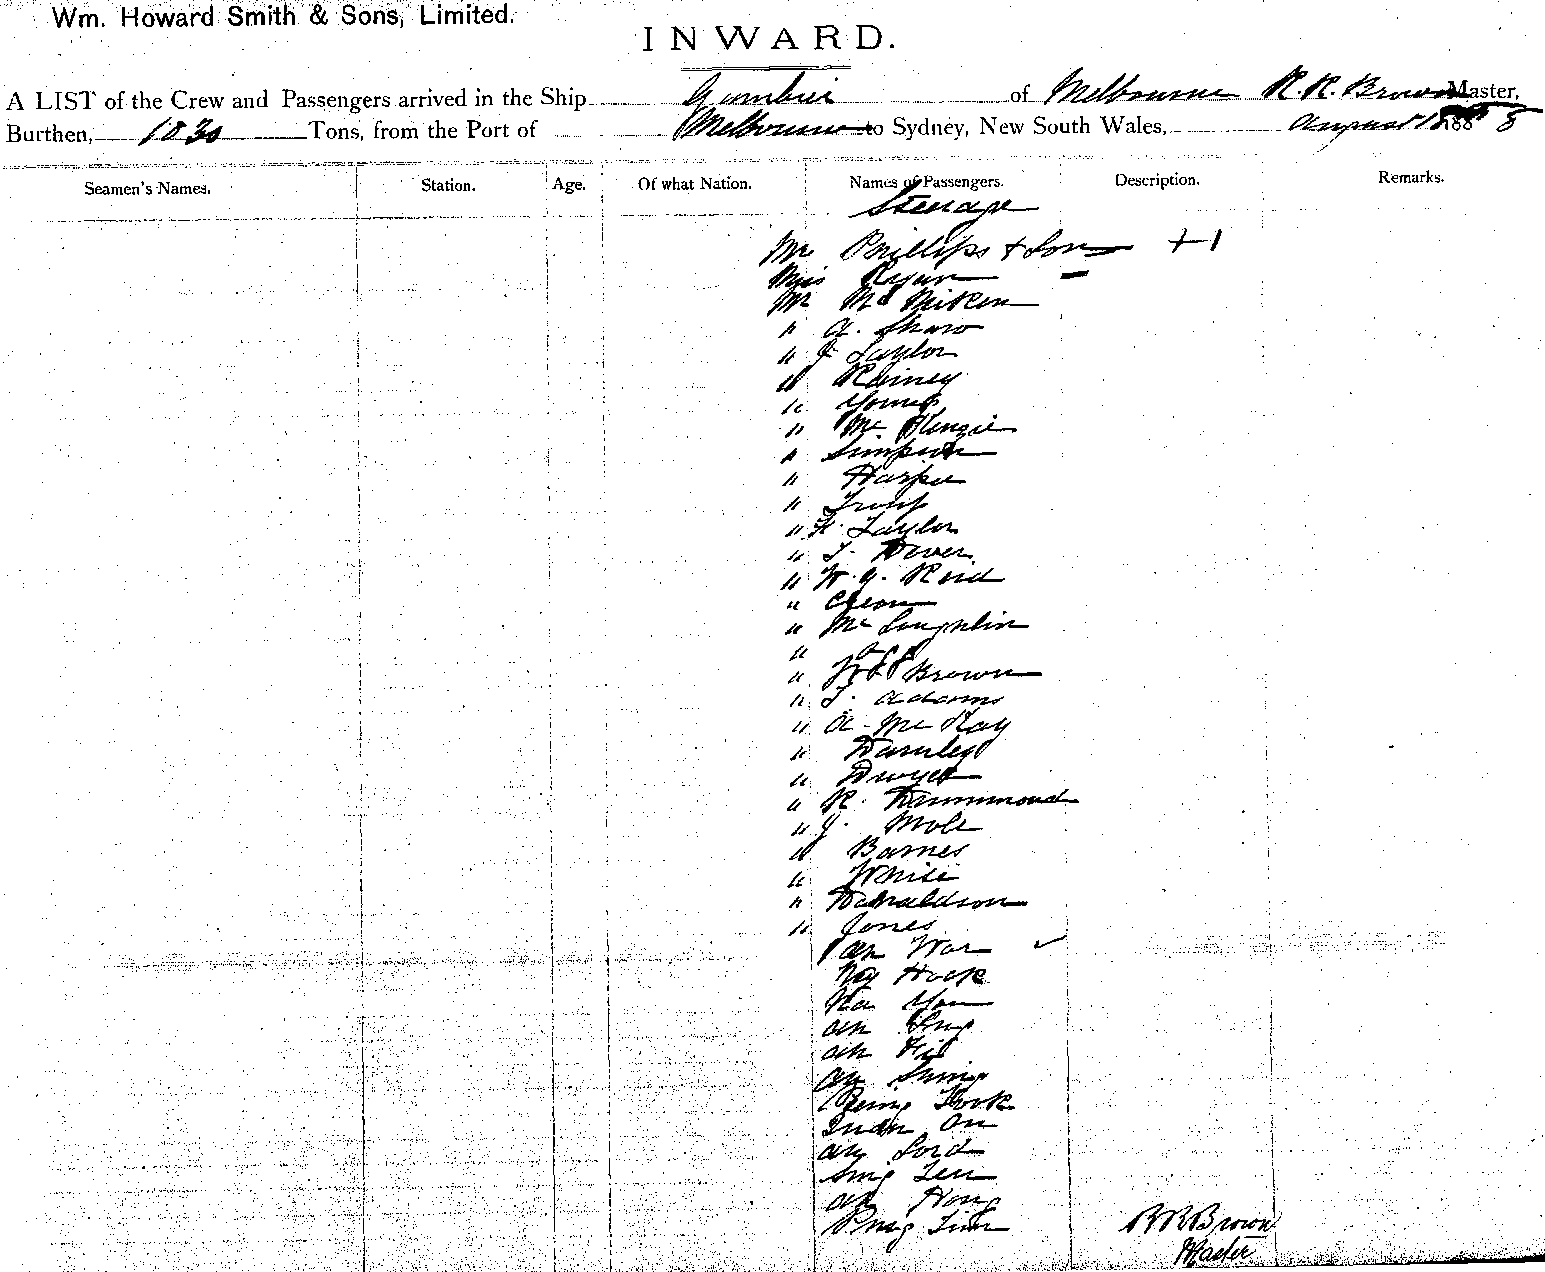 Wm. Howard Smith & Sons, Limited.
INWARD.
A LIST of the Crew and Passengers arrived in the Ship Gambier of Melbourne R. R. Brown Master,
Burthen, 1830 Tons, from the Port of Melbourne to Sydney, New South Wales, August 188 8
Seamen's Names. Station. Age. Of what Nation. Names of Passengers. Description. Remarks.
Steerage
Mr Phillips & Son +1
Miss Ryan
Mr Mc Miken
" A. Shaw
" J Taylor
" Rainey
" Young
" Mc Kenzie
" Simpson
" Harper
" Troup
" H. Taylor
" T. Dever
" W. G. Reid
" Cleon
" Mc Loughlin
"
" Brown
" T. Adams
" A. Mc Kay
" Darnley
" Dwyer
" R. Hammond
" J. Mole
" Barnes
" White
" Donaldson
" Jones
Ah War
Hock
You
Ah
Ah
Ah Shing
Hook
On
Ah Lord
Sing Lee
Ah Hong
R R Brown
Master